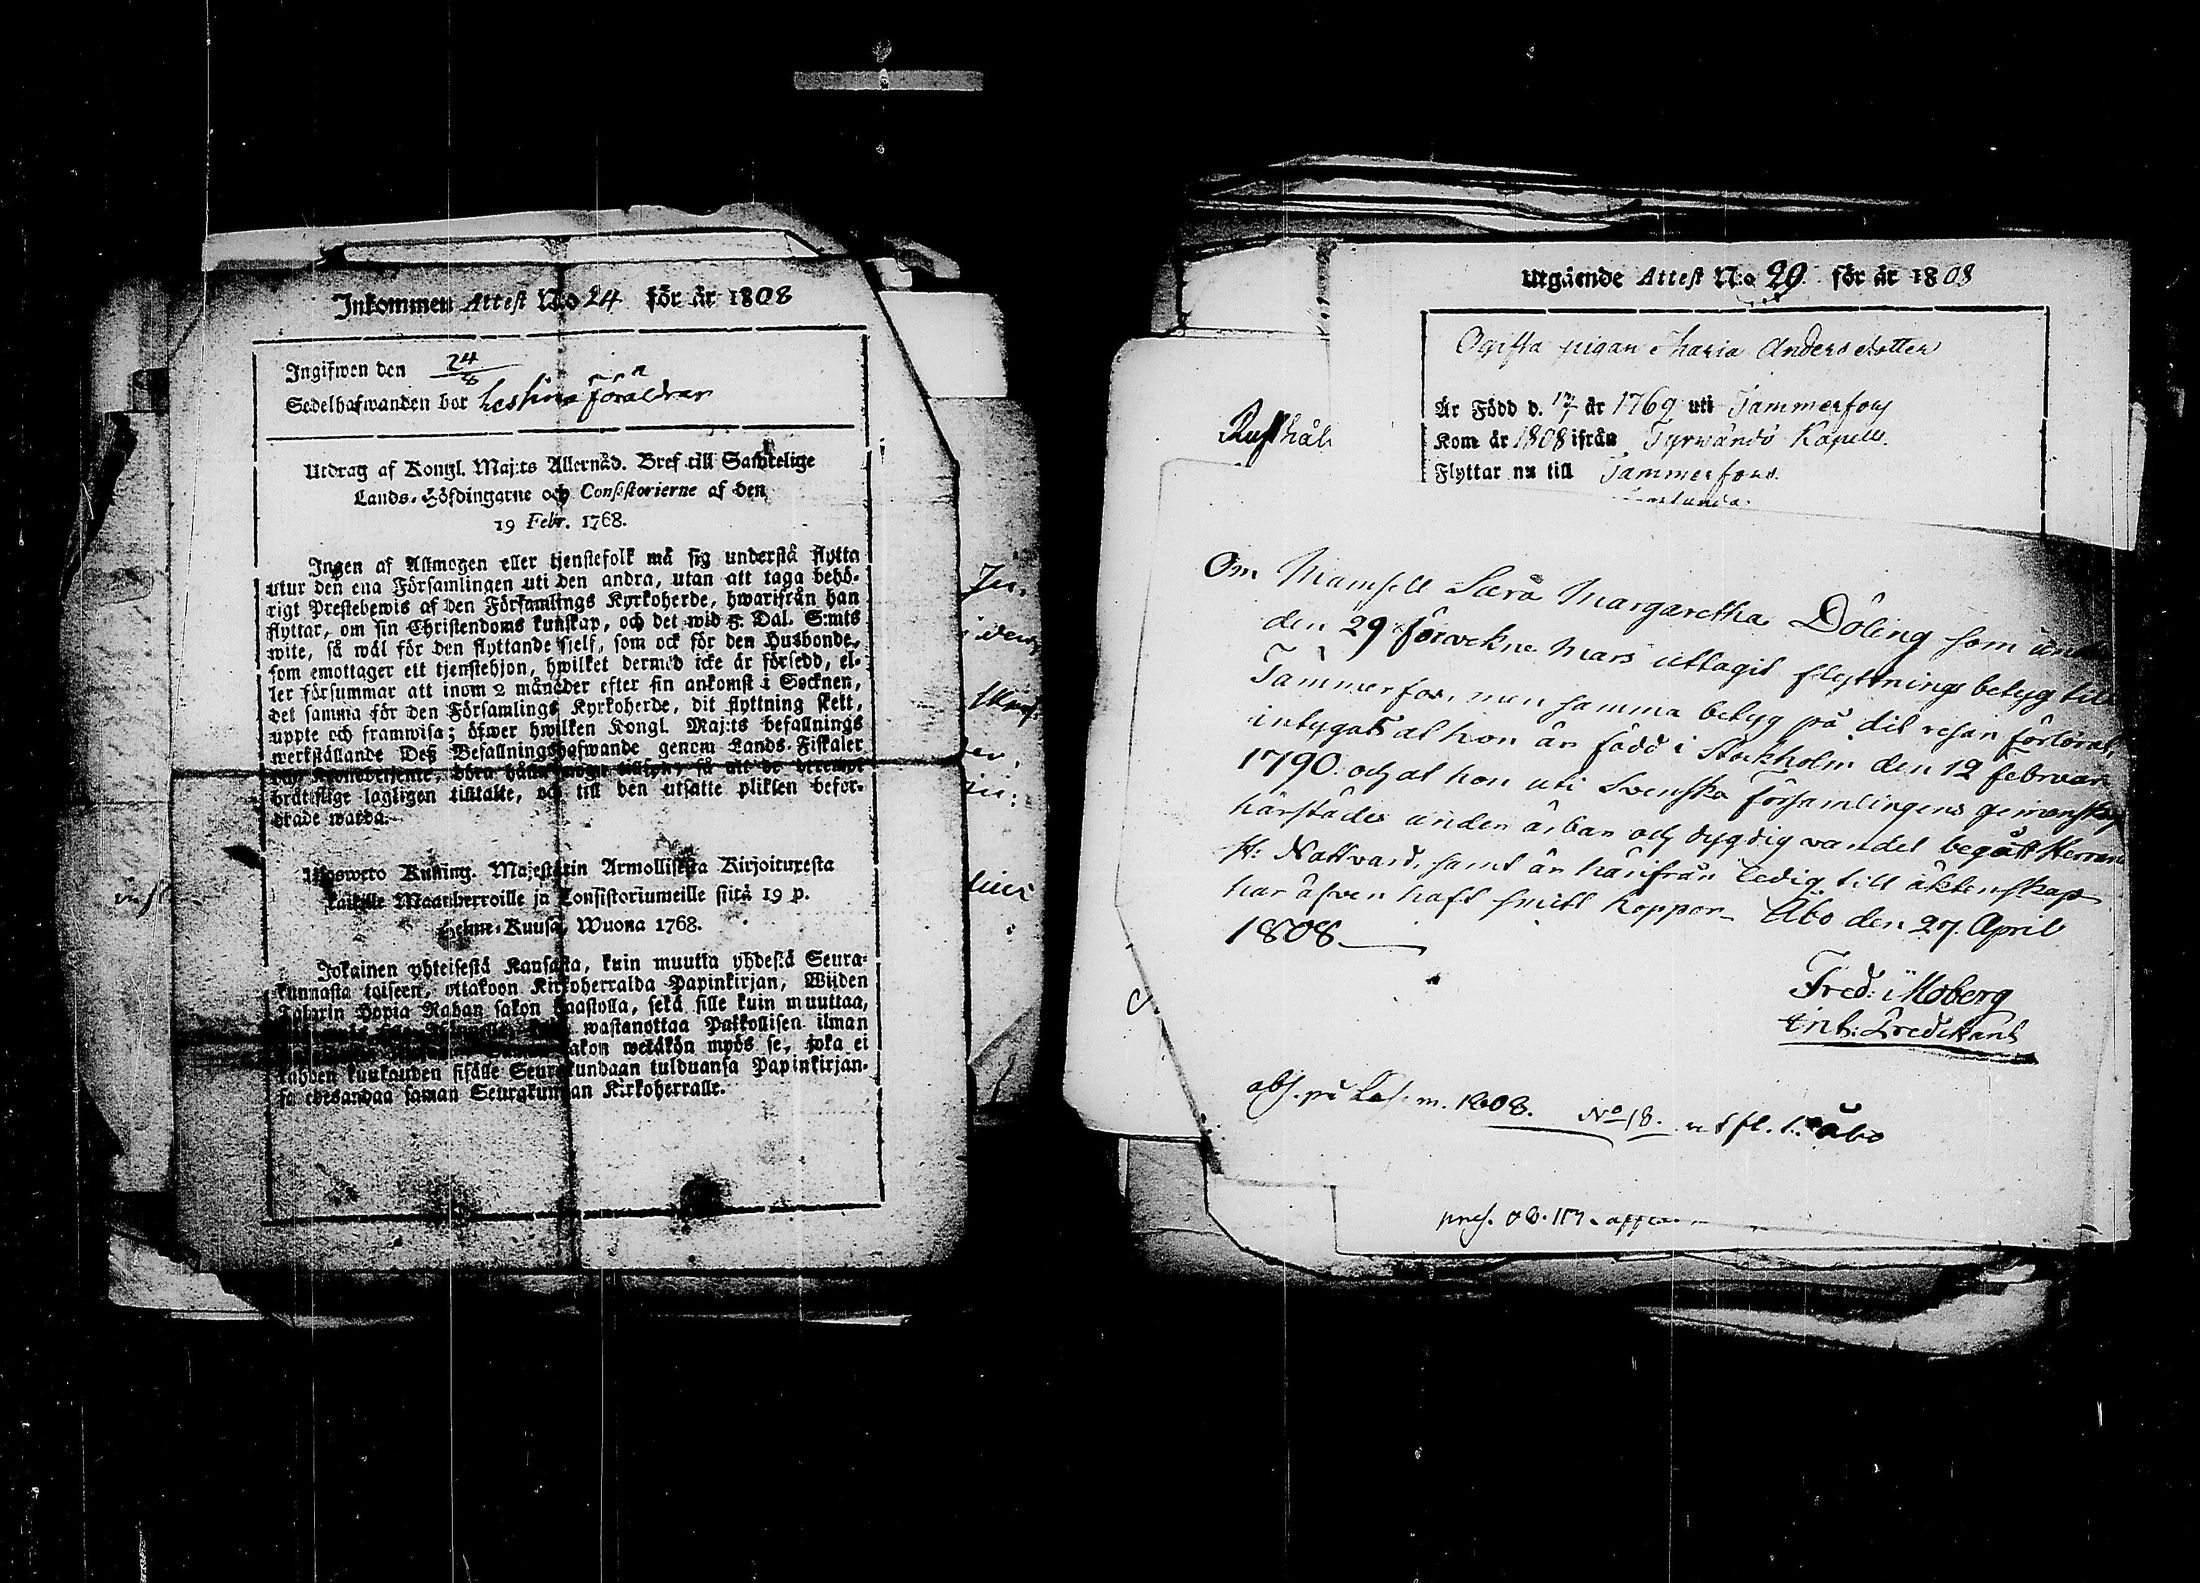 Inkommen Attest No 24 för år 1808
Ingifwen den 24/8
Sedelhafwanden bor hos sina föräldrar
Utdrag af Kongl. Maj:ts Allernåd. Bref till Samtelige
Lands-Höfdingarne och Consistorierne af den
19 Febr. 1768.
Ingen af Allmogen eller tjenstefolk må sig understå flytta
utur den ena Församlingen uti den andra, utan att taga behö-
rigt Prestebewis af den Församlings Kyrkoherde, hwarifrån han
flyttar, om sin Christendoms kunskap, och det wid 5 Dal. S:mts
wite, så wäl för den flyttande sjelf, som ock för den Husbonde,
som emottager ett tjenstehjon, hwilket dermed icke är försedd, el-
ler försummar att inom 2 månader efter sin ankomst i Socknen,
det samma för den Församlings Kyrkoherde, dit flyttning skett,
uppte och framwisa; öfwer hwilken Kongl. Maj:ts befallnings
werkställande Deß Befallningshafwande genom Lands-Fiskaler
så att de
brottslige lagligen tilltalte, och till den utsatte plikten befor-
drade warda.
Ulosweto Kuning. Majestetin Armollisesta Kirjoituxesta
kaikille Maanherroille ja Consistoriumeille siitä 19 p.
Helme-Kuusa, Wuona 1768.
Jokainen yhteisestä Kansasta, kuin muutta yhdestä Seura-
kunnasta toiseen, ottakoon Kirkoherralda Papinkirjan, Wijden
Talarin Hopia Rahan sakon haastolla, sekä sille kuin muuttaa,
wastanottaa Palkollisen ilman
sakon wetäkön myös se, joka ei
kahden kuukauden sisälle Seurakundaan tulduansa Papinkirjan-
sa edesandaa saman Seurakunnan Kirkoherralle.
Utgående Attest N:o 29. för år 1808
Ogifta pigan Maria Andersdotter
Är Född d. 17/7 år 1769 uti Tammerfors
Kom år 1808 ifrån Tyrwändö Kapell.
Flyttar nu till Tammerfors.
Rusthål
Om Mamsell Sara Margaretha Döling som under
den 29 förvekne Mars uttagit flyttningsbetyg till
Tammerfors, men samma betyg på dit resan förlorat,
intygas at hon är född i Stockholm den 12 februari
1790. och at hon uti Svenska Församlingens gemenskap
härstädes under ärbar och dygdig vandel begått Herrans
H: Nattvard, samt är härifrån ledig till äktenskap
har äfven haft smitt koppor. Åbo den 27. April
1808.
Fred: Moberg
abs. på Las. m. 1808. No 18. utfl. Åbo